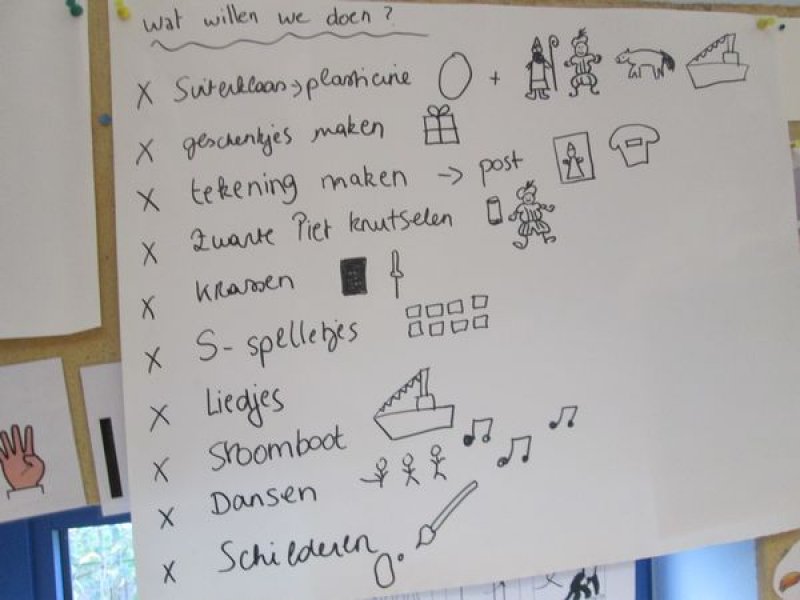 wat willen we doen?
X Sinterklaas → plasticine +
X geschenkjes maken
X tekening maken → post
X Zwarte Piet knutselen
X krassen
X S-spelletjes
X Liedjes
X Stoomboot
X Dansen
X Schilderen